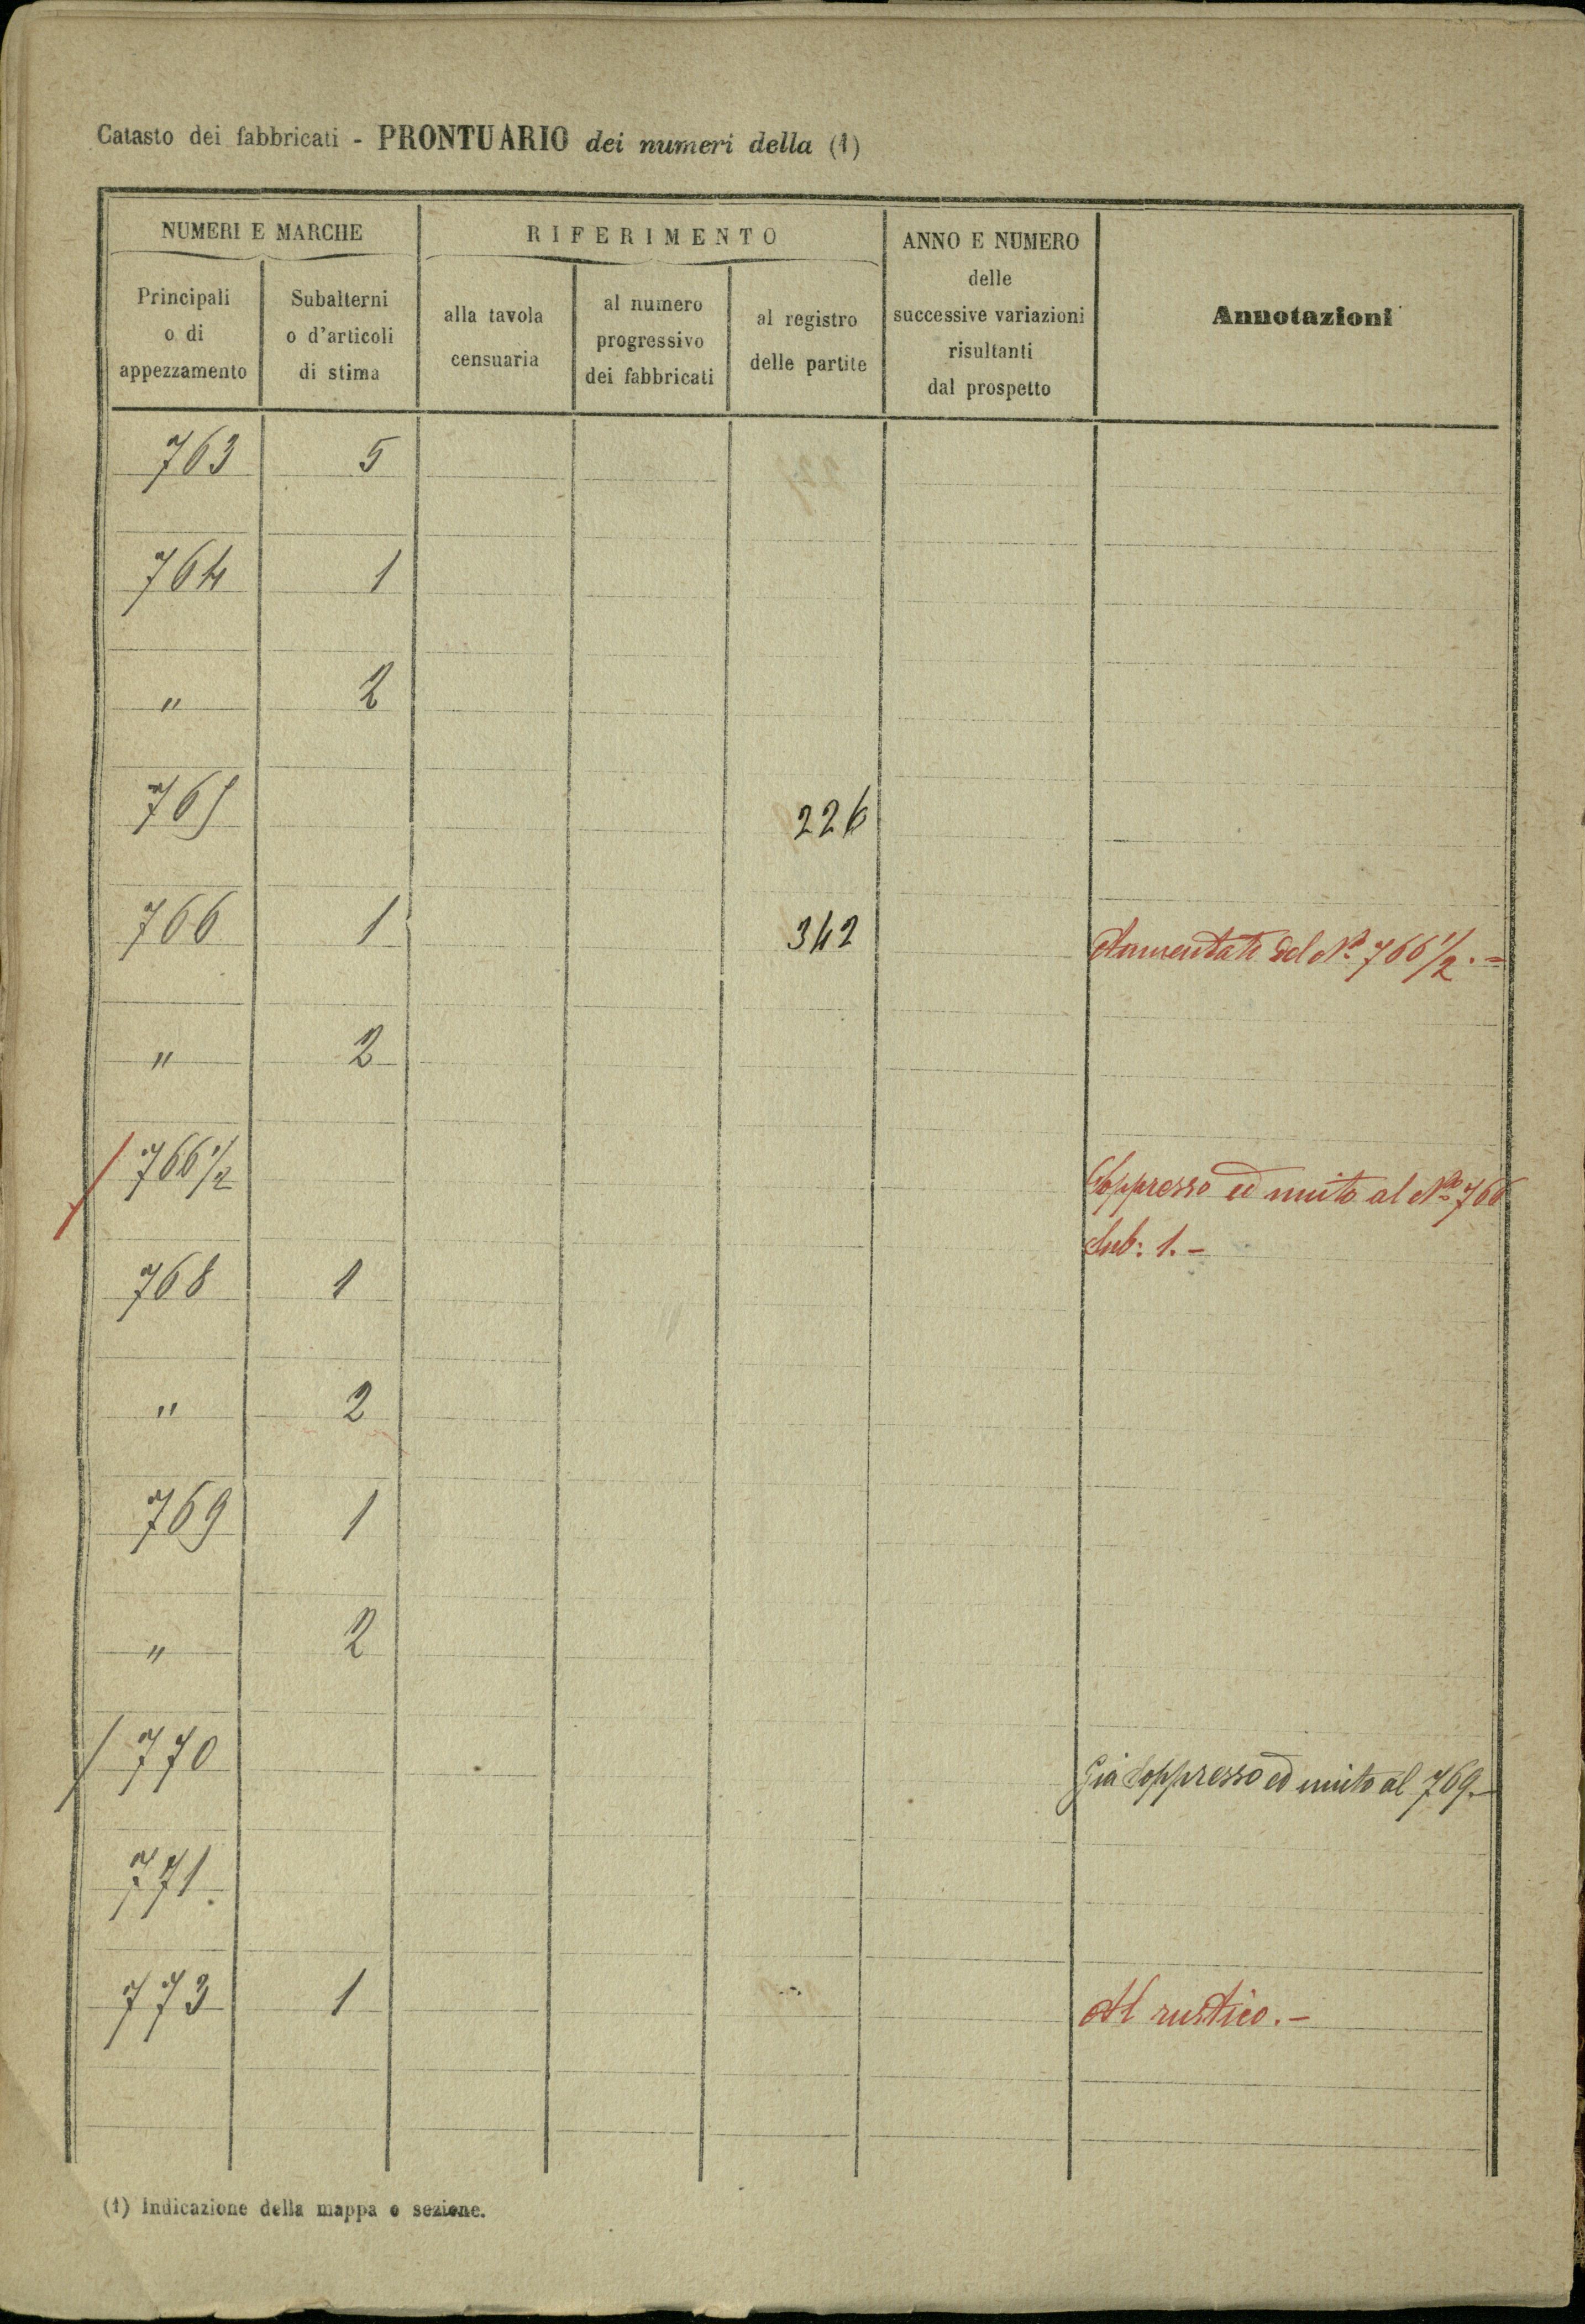 Catasto dei fabbricati - PRONTUARIO dei numeri della (1)
NUMERI E MARCHE
RIFERIMENTO
ANNO E NUMERO
delle
successive variazioni
risultanti
dal prospetto
Annotazioni
Principali
o di
appezzamento
Subalterni
o d'articoli
di stima
alla tavola
censuaria
al numero
progressivo
dei fabbricati
al registro
delle partite
763 5
764 1
" 2
765 226
766 1 342 Aumentato del Nº 766 1/2 . =
" 2
766 1/2 Soppresso ed unito al Nº 766
Sub: 1. -
768 1
" 2
769 1
" 2
770 Già Soppresso ed unito al 769. -
771.
773 1 Al rustico. -
(1) Indicazione della mappa o sezione.